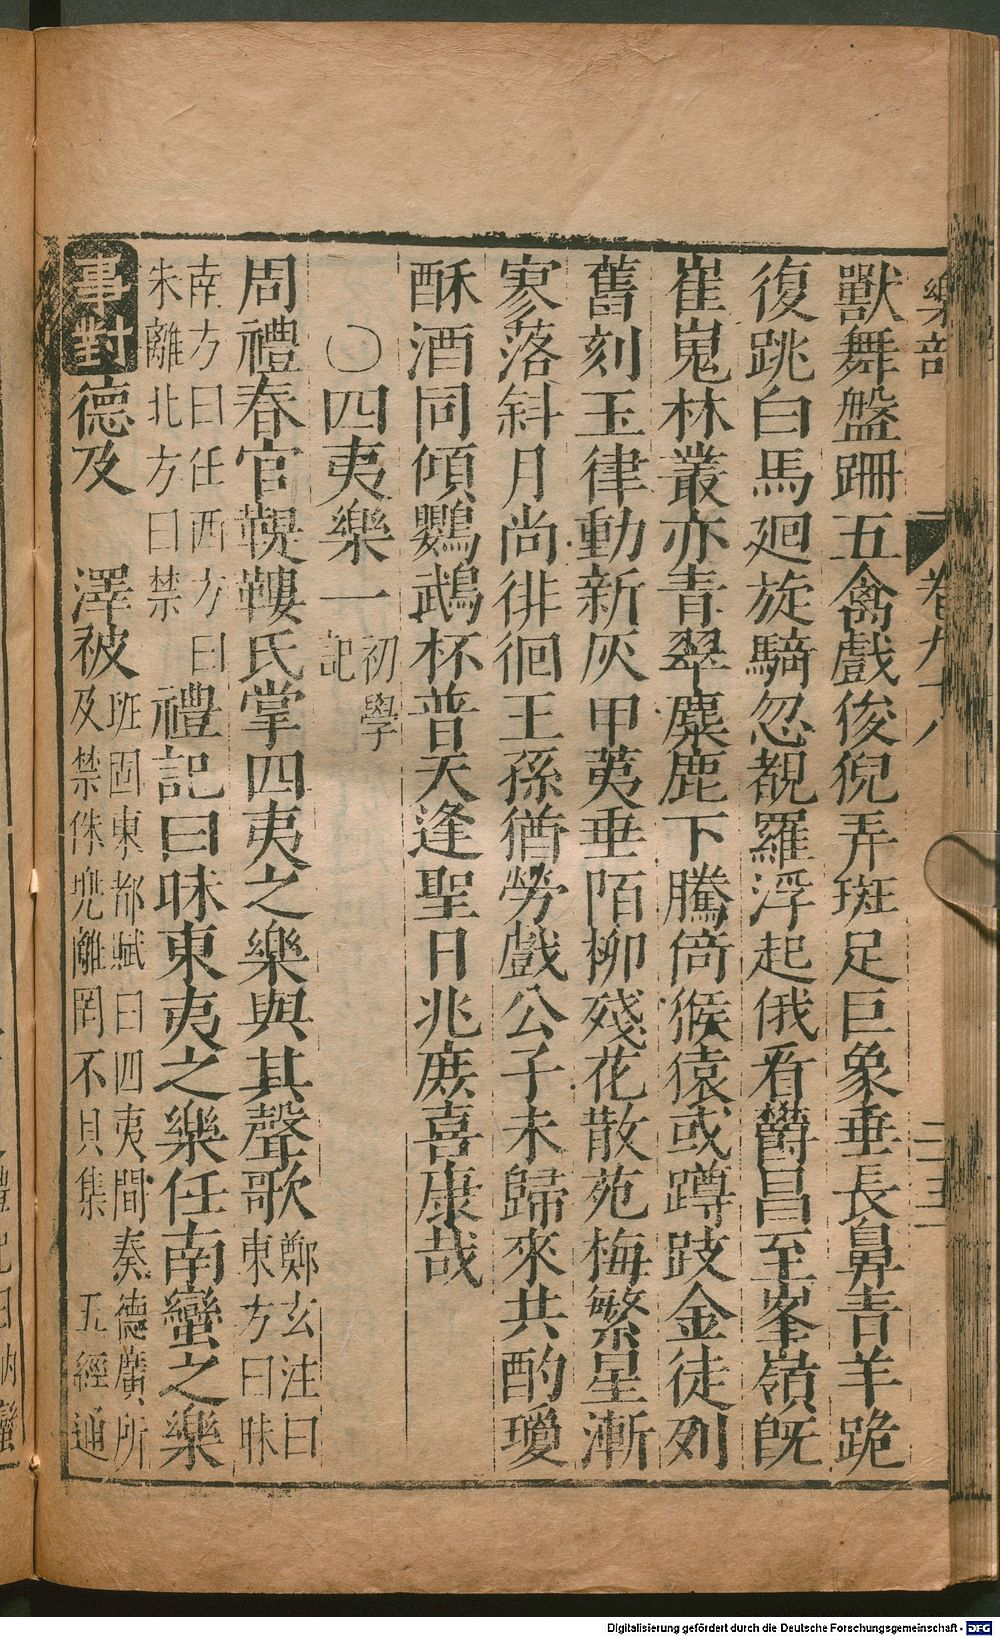 樂部 卷九十八
獸舞盤跚五禽戲俊猊弄斑足巨象垂長鼻吉羊跪
復跳白馬廻旋騎忽覩羅浮起俄看鬱昌至峯嶺既
崔嵬林叢亦青翠麋鹿下騰倚猴猿或蹲跂金徒列
舊刻玉律動新灰甲荑垂陌柳殘花散苑梅繁星漸
寥落斜月尚徘徊王孫猶勞戲公子未歸來共酌瓊
酥酒同傾鸚鵡杯普天逢聖日兆庶喜康哉
○四夷樂一 初學記
周禮春官鞮鞻氏掌四夷之樂與其聲歌 鄭玄注曰東方曰昧
南方曰任西方曰朱離北方曰禁 禮記曰昧東夷之樂任南蠻之樂
事對 德及 澤被 班固東都賦曰四夷間奏德廣所及禁侏兜離罔不具集 五經通
Digitalisierung gefördert durch die Deutsche Forschungsgemeinschaft - DFG